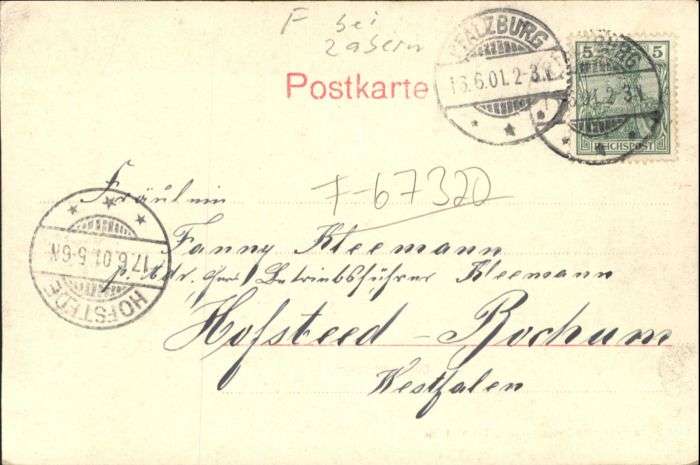 F bei
Zabern
Postkarte
PFALZBURG
16.6.01. 2-3N.
5 5
REICHSPOST
F-67320
Fräulein
Fanny Kleemann
Betriebsführer Kleemann
Hofsteed-Bochum
Westfalen
HOFSTEDE
17.6.01. 5-6N.